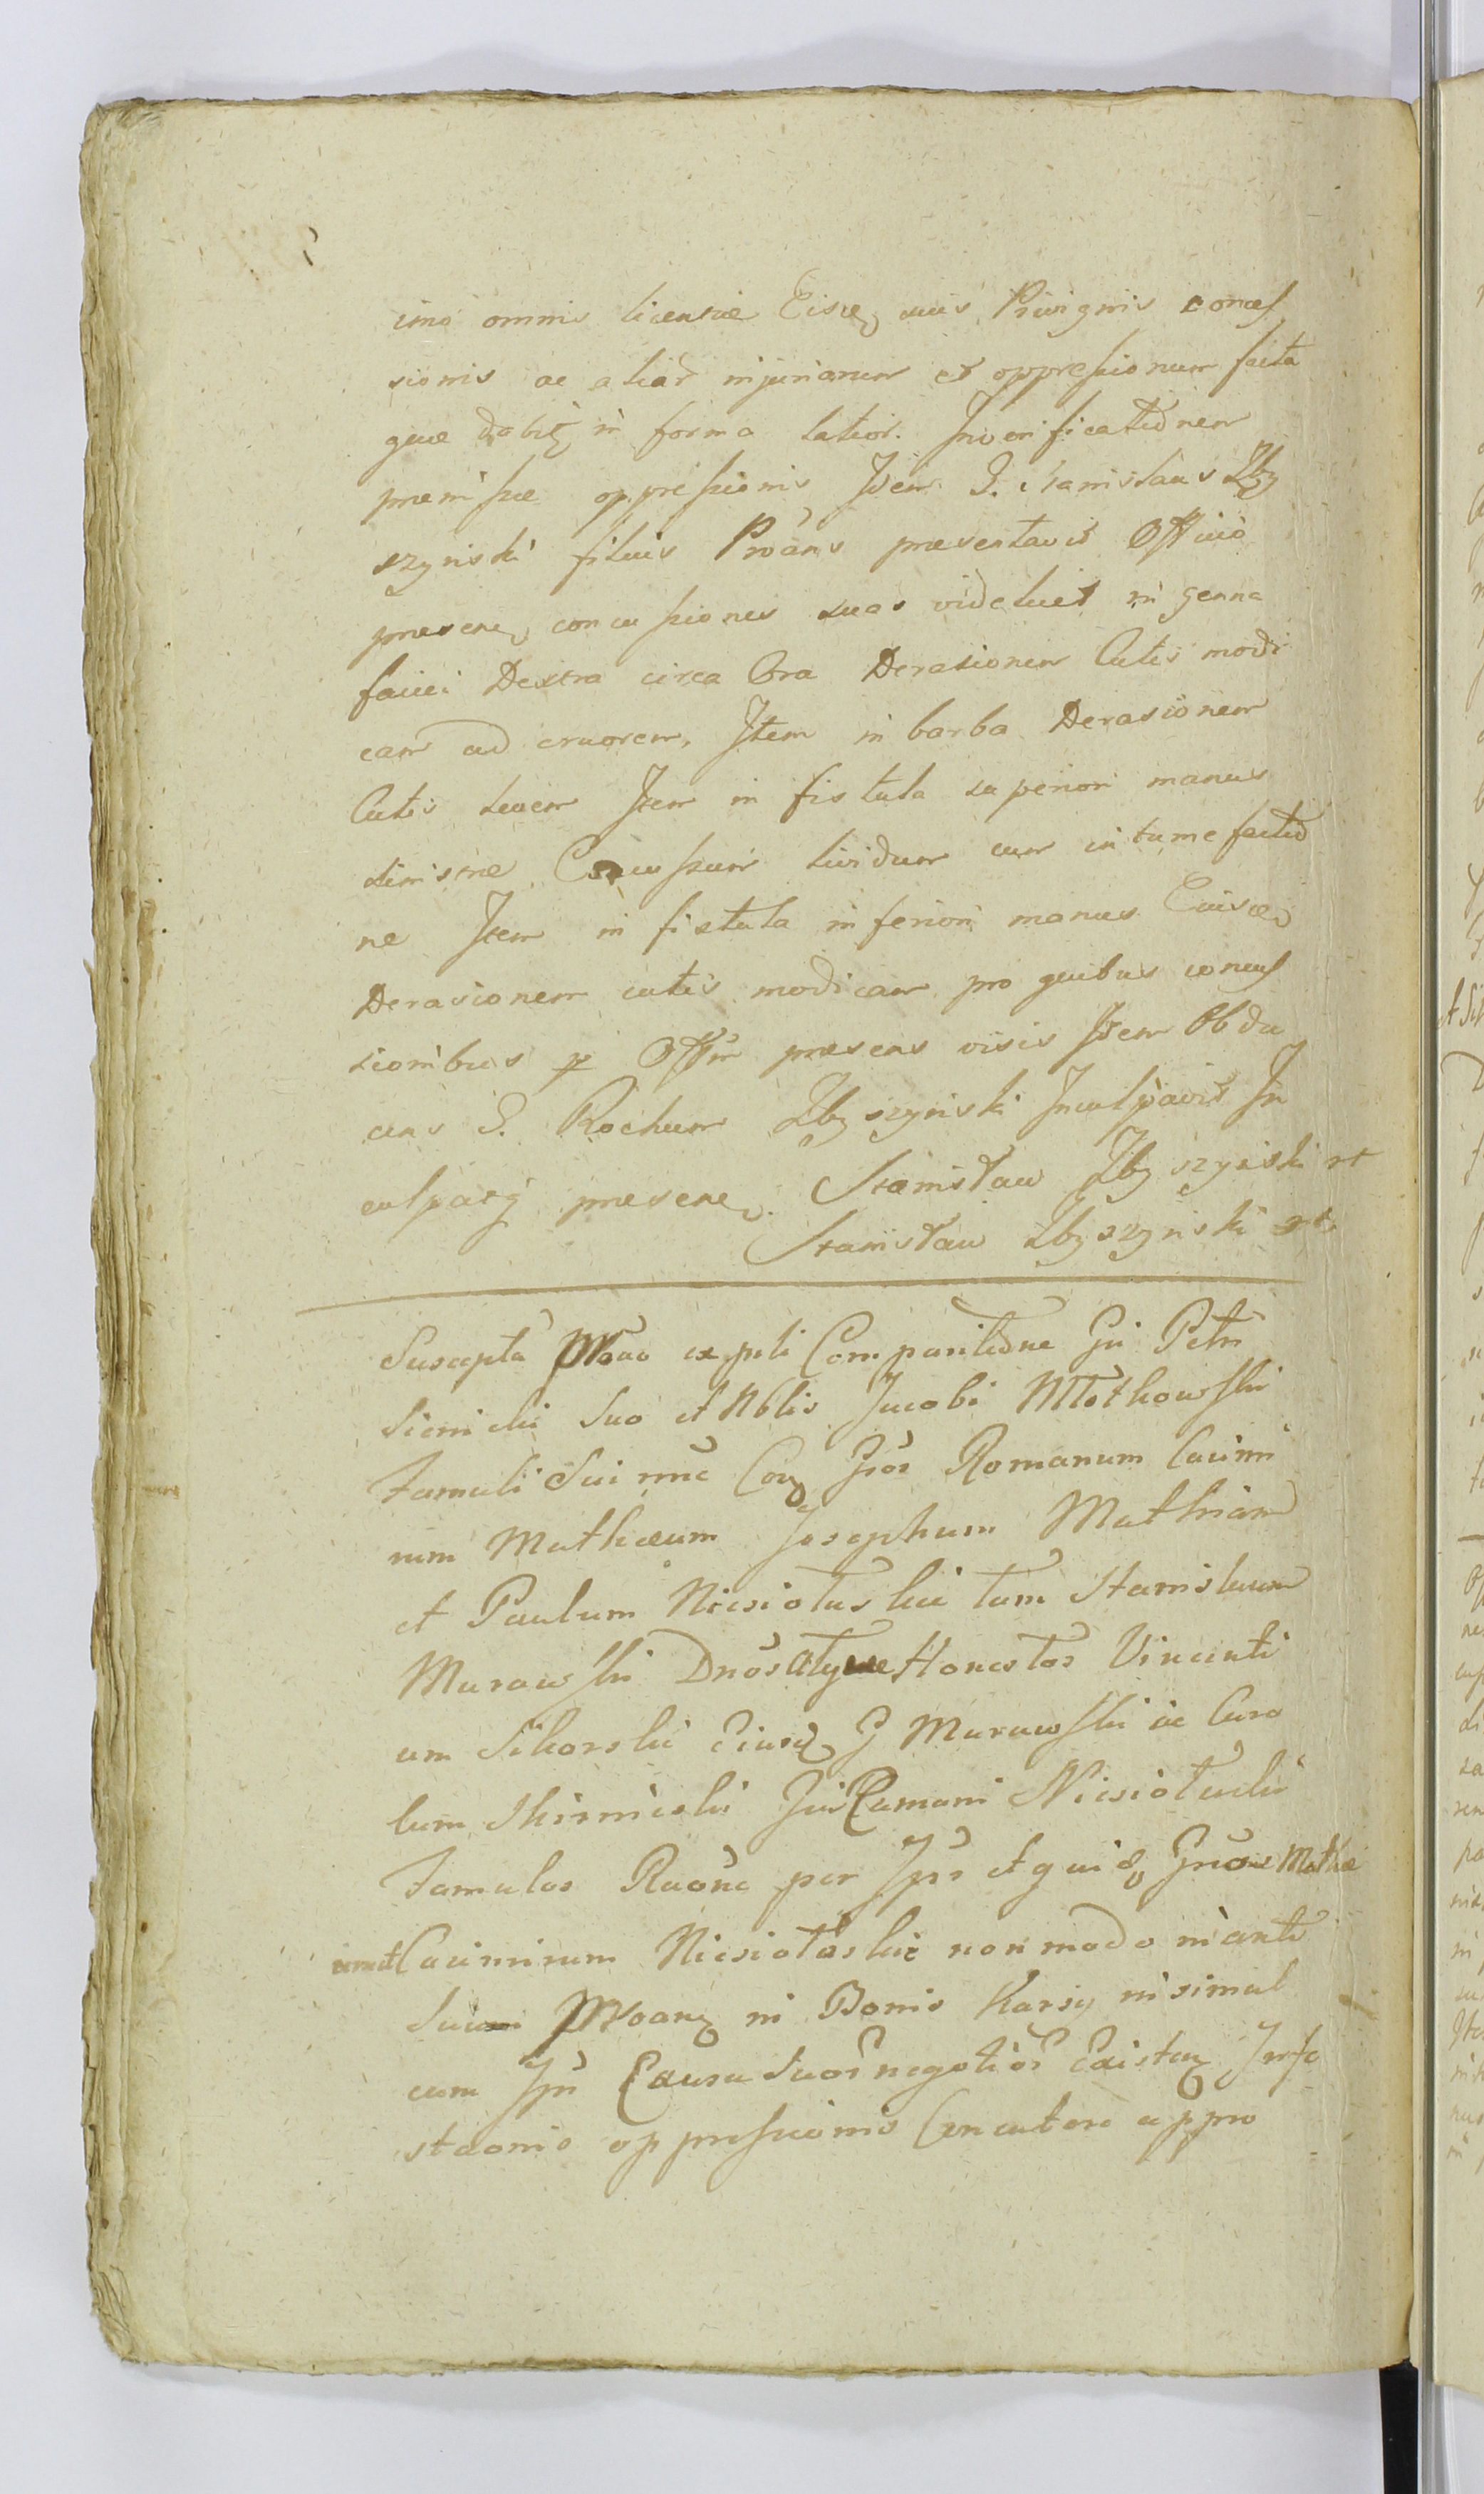 imo omnis licentiæ Eisdē suis Privignis conces
sionis ac aliar injuriarum et oppressionum facta
quæ dabit in forma latior. In verificationem
præmissæ oppressionis Idem G. Stanislaus Zby
szynski filius Proãns præsentavit Officio
præsenẽ concussiones suas videlicet in genna
faciei Dextra circa Ora Derasionem Cutis modi
cam ad cruorem, Item in barba Derasionem
Cutis levem Item in fistula superiori manus
sinistræ Concussum lividum cum intumefactio
ne Item in fistula inferiori manus Eiusdẽ
Derasionem cutis modicam pro quibus concus
sionibus p Offm præsens visis Idem Obdu
cens G. Rochum Zbyszynski Inculpavit In
culpatq præsenẽ. Stanisław Zbyszynski
Stanisław Zbyszynski
Suscepta Proao ex pti Comparitione Gi Petri
Siemicki Suo et Nblis Jacobi Młotkowski
Famuli Sui nnẽ Con Gos Romanum Casimi
rum Mathæum Josephum Mathiam
et Paulum Niesiołuskie tum Stanislaum
Murawski Dnos Atque Honestos Vincenti
um Sikorski Eiusd G Murawski ac Caro
lum Skirmicski Gi Romani Niesiołuski
Famulos Raõne per Ips et quidẽ Gnos Mathæ
um et Casimirum Niesiołuskie non modo in ante
Suum Proanẽ in Bonis Karsy in simul
cum Ips Causa Suor negotior Existen Infe
staonis oppressionis Concutere appro